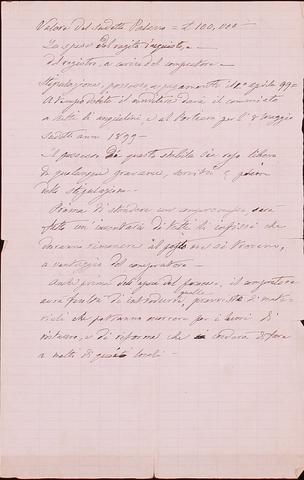 Valore del suddetto Palazzo = £ 100,000 =
Le spese del rogito d'acquisto, e
del registro, a carico del compratore. —
Stipulazione, possesso, e pagamento il 1º aprile 99 =
A tempo debito il venditore darà il commiato
a tutti gl'inquilini, e al Portiere per l'8 Maggio
suddetto anno 1899 =
Il possesso di questo stabile sia reso libero
di qualunque gravame, servitù, e
della stipulazione. —
Prima di stendere un compromesso, sarà
fatto un inventario di tutti gl'infissi che
dovranno rimanere al posto ove si trovano,
a vantaggio del compratore. —
Anche prima del giorno del possesso, il compratore
avrà facoltà di introdurre quelle provviste di mate-
riali che potranno occorrere per i lavori di
restauro, e di riforma che si
a molti di questi locali —